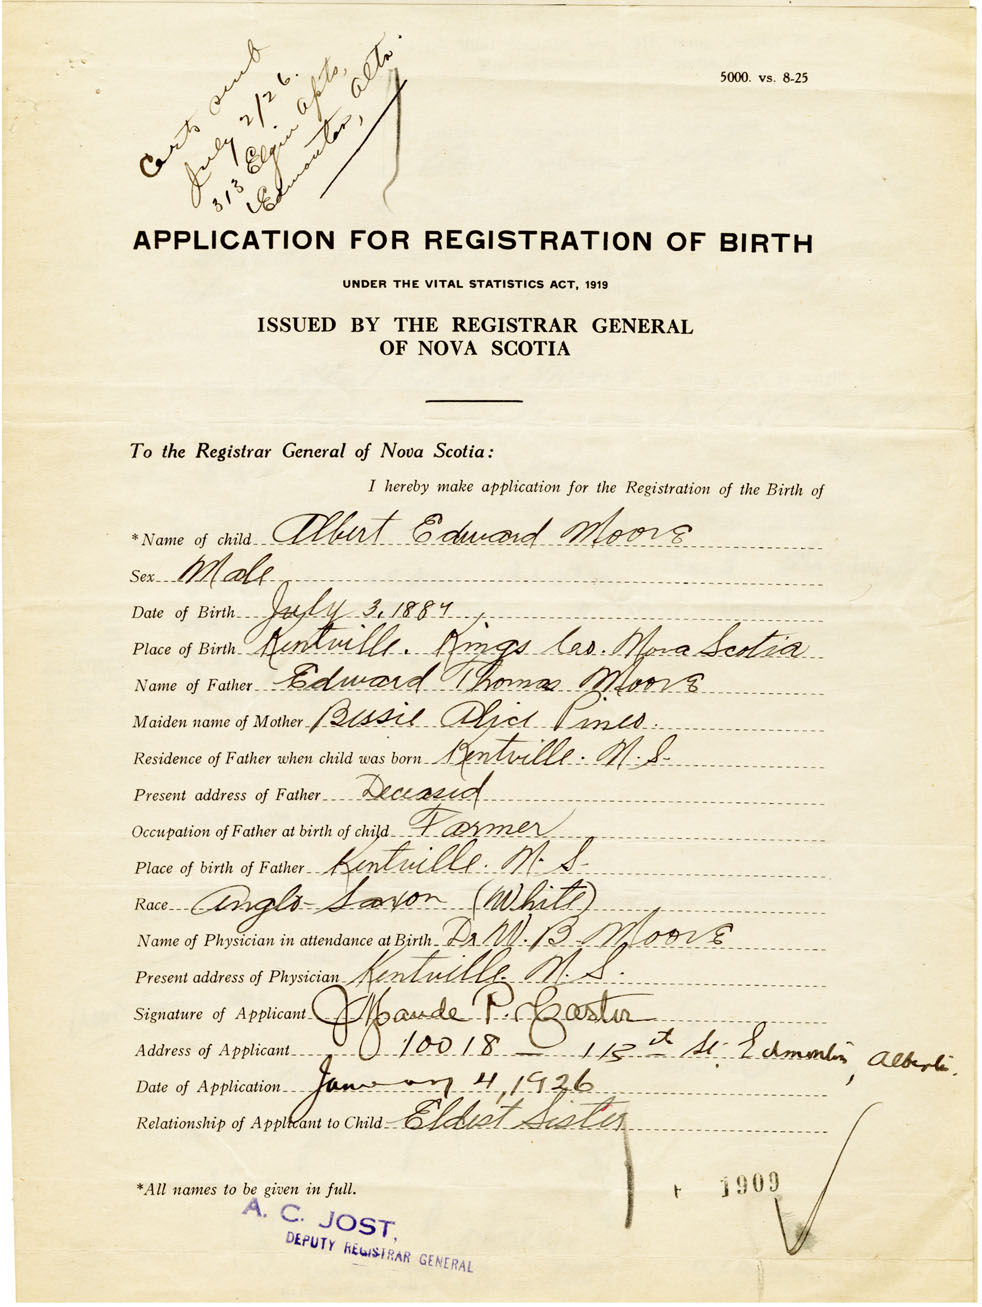 Certs sent
July 2/26.
313 Elgin Apts,
Edmonton, Alta.
5000. vs. 8-25
APPLICATION FOR REGISTRATION OF BIRTH
UNDER THE VITAL STATISTICS ACT, 1919
ISSUED BY THE REGISTRAR GENERAL
OF NOVA SCOTIA
To the Registrar General of Nova Scotia:
I hereby make application for the Registration of the Birth of
*Name of child Albert Edward Moore
Sex Male
Date of Birth July 3, 1887
Place of Birth Kentville. Kings Co. Nova Scotia
Name of Father Edward Thomas Moore
Maiden name of Mother Bessie Alice Pineo.
Residence of Father when child was born Kentville. N. S.
Present address of Father Deceased
Occupation of Father at birth of child Farmer
Place of birth of Father Kentville. N. S.
Race Anglo-Saxon (White)
Name of Physician in attendance at Birth Dr W. B. Moore
Present address of Physician Kentville. N. S.
Signature of Applicant Maude P.
Address of Applicant 10018 – 113th St. Edmonton, Alberta.
Date of Application January 4, 1926
Relationship of Applicant to Child Eldest Sister
*All names to be given in full.
1909
A. C. JOST,
DEPUTY REGISTRAR GENERAL